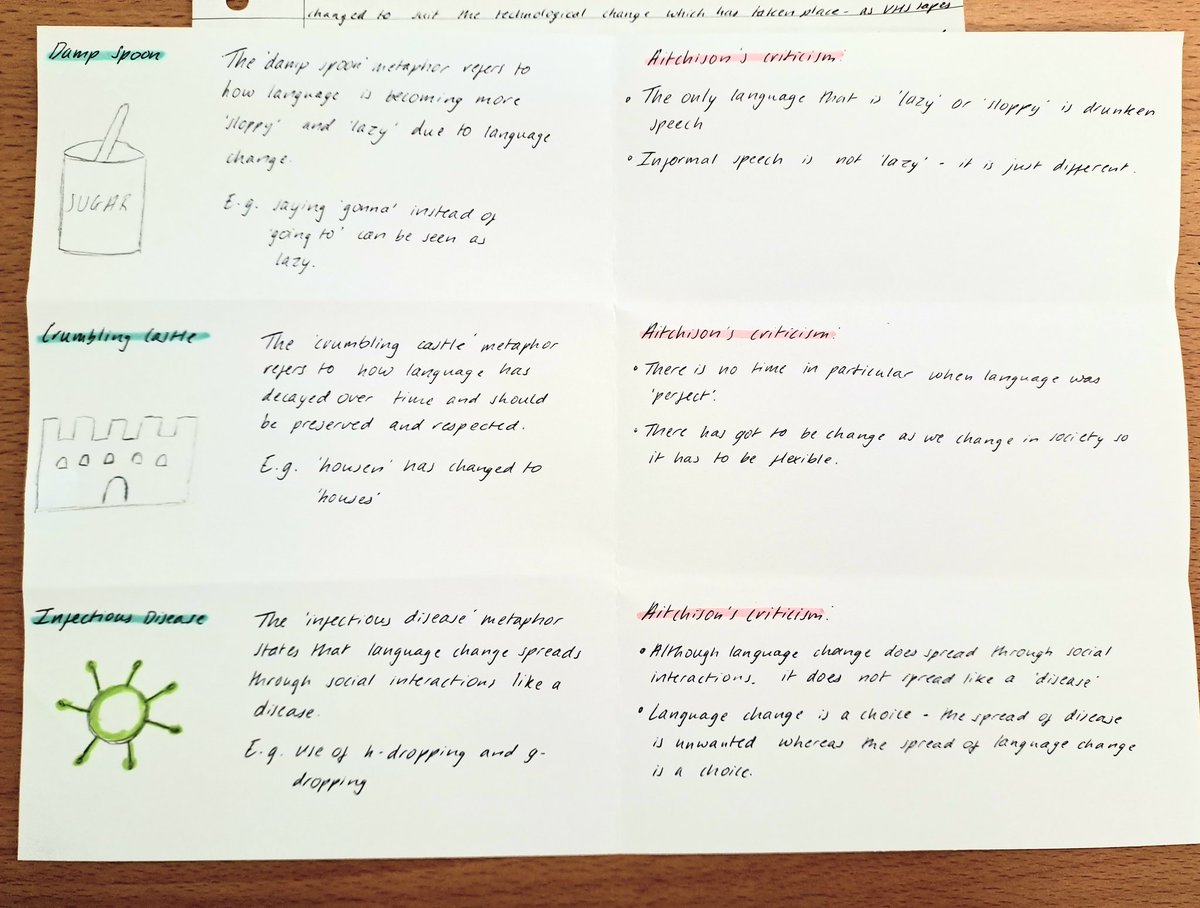 changed to suit the technological change which has taken place - as VHS tapes
Damp Spoon
The 'damp spoon' metaphor refers to
how language is becoming more
'sloppy' and 'lazy' due to language
change.
E.g. saying 'gonna' instead of
'going to' can be seen as
lazy.
SUGAR
Aitchison's criticism:
• The only language that is 'lazy' or 'sloppy' is drunken
speech
• Informal speech is not 'lazy' - it is just different.
Crumbling Castle
The 'crumbling castle' metaphor
refers to how language has
decayed over time and should
be preserved and respected.
E.g. 'housen' has changed to
'houses'
Aitchison's criticism:
• There is no time in particular when language was
'perfect'.
• There has got to be change as we change in society so
it has to be flexible.
Infectious Disease
The 'infectious disease' metaphor
states that language change spreads
through social interactions like a
disease.
E.g. use of h-dropping and g-
dropping
Aitchison's criticism:
• Although language change does spread through social
interactions. it does not spread like a 'disease'
• Language change is a choice - the spread of disease
is unwanted whereas the spread of language change
is a choice.